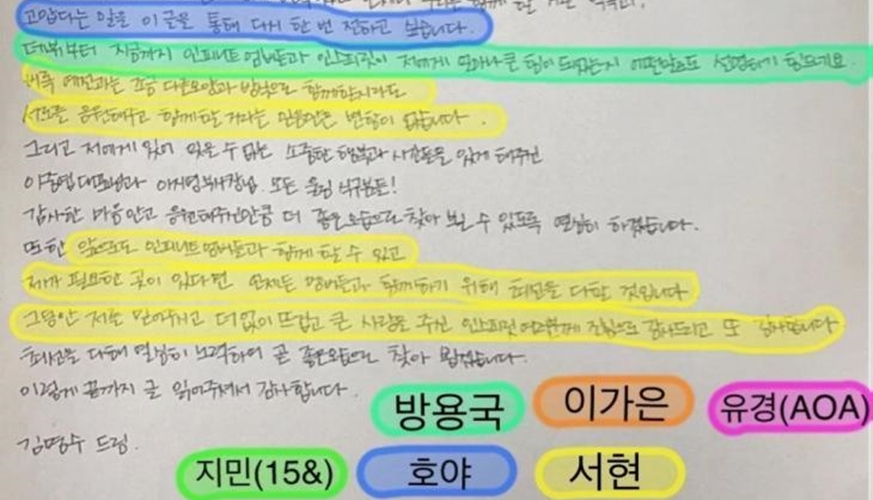 고맙다는 말을 이 글을 통해 다시 한 번 전하고 싶습니다.
데뷔부터 지금까지 인피니트 멤버들과 인스피릿이 저에게 얼마나 큰 힘이 되었는지 어떤말로도 설명하기 힘드네요.
비록 예전과는 조금 다른모양과 방식으로 함께할지라도
서로를 응원해주고 함께할 거라는 믿음만은 변함이 없습니다.
그리고 저에게 있어 잊을 수 없는 소중한 행복과 시간들을 있게 해주신
이중엽대표님과 부사장님. 모든 울림 식구분들!
감사한 마음 안고 응원해주신만큼 더 좋은모습으로 찾아 뵐 수 있도록 열심히 하겠습니다.
또한 앞으로도 인피니트멤버들과 함께 할 수 있고
제가 필요한 곳이 있다면 언제든 멤버들과 함께하기 위해 최선을 다할 것입니다
그동안 저를 믿어주시고 더없이 뜨겁고 큰 사랑을 주신 인스피릿 여러분께 진심으로 감사드리고 또 감사합니다
최선을 다해 열심히 노력하여 곧 좋은모습으로 찾아 뵙겠습니다.
이렇게 끝까지 글 읽어주셔서 감사합니다.
김명수 드림.
방용국 이가은 유경(AOA)
지민(15&) 호야 서현